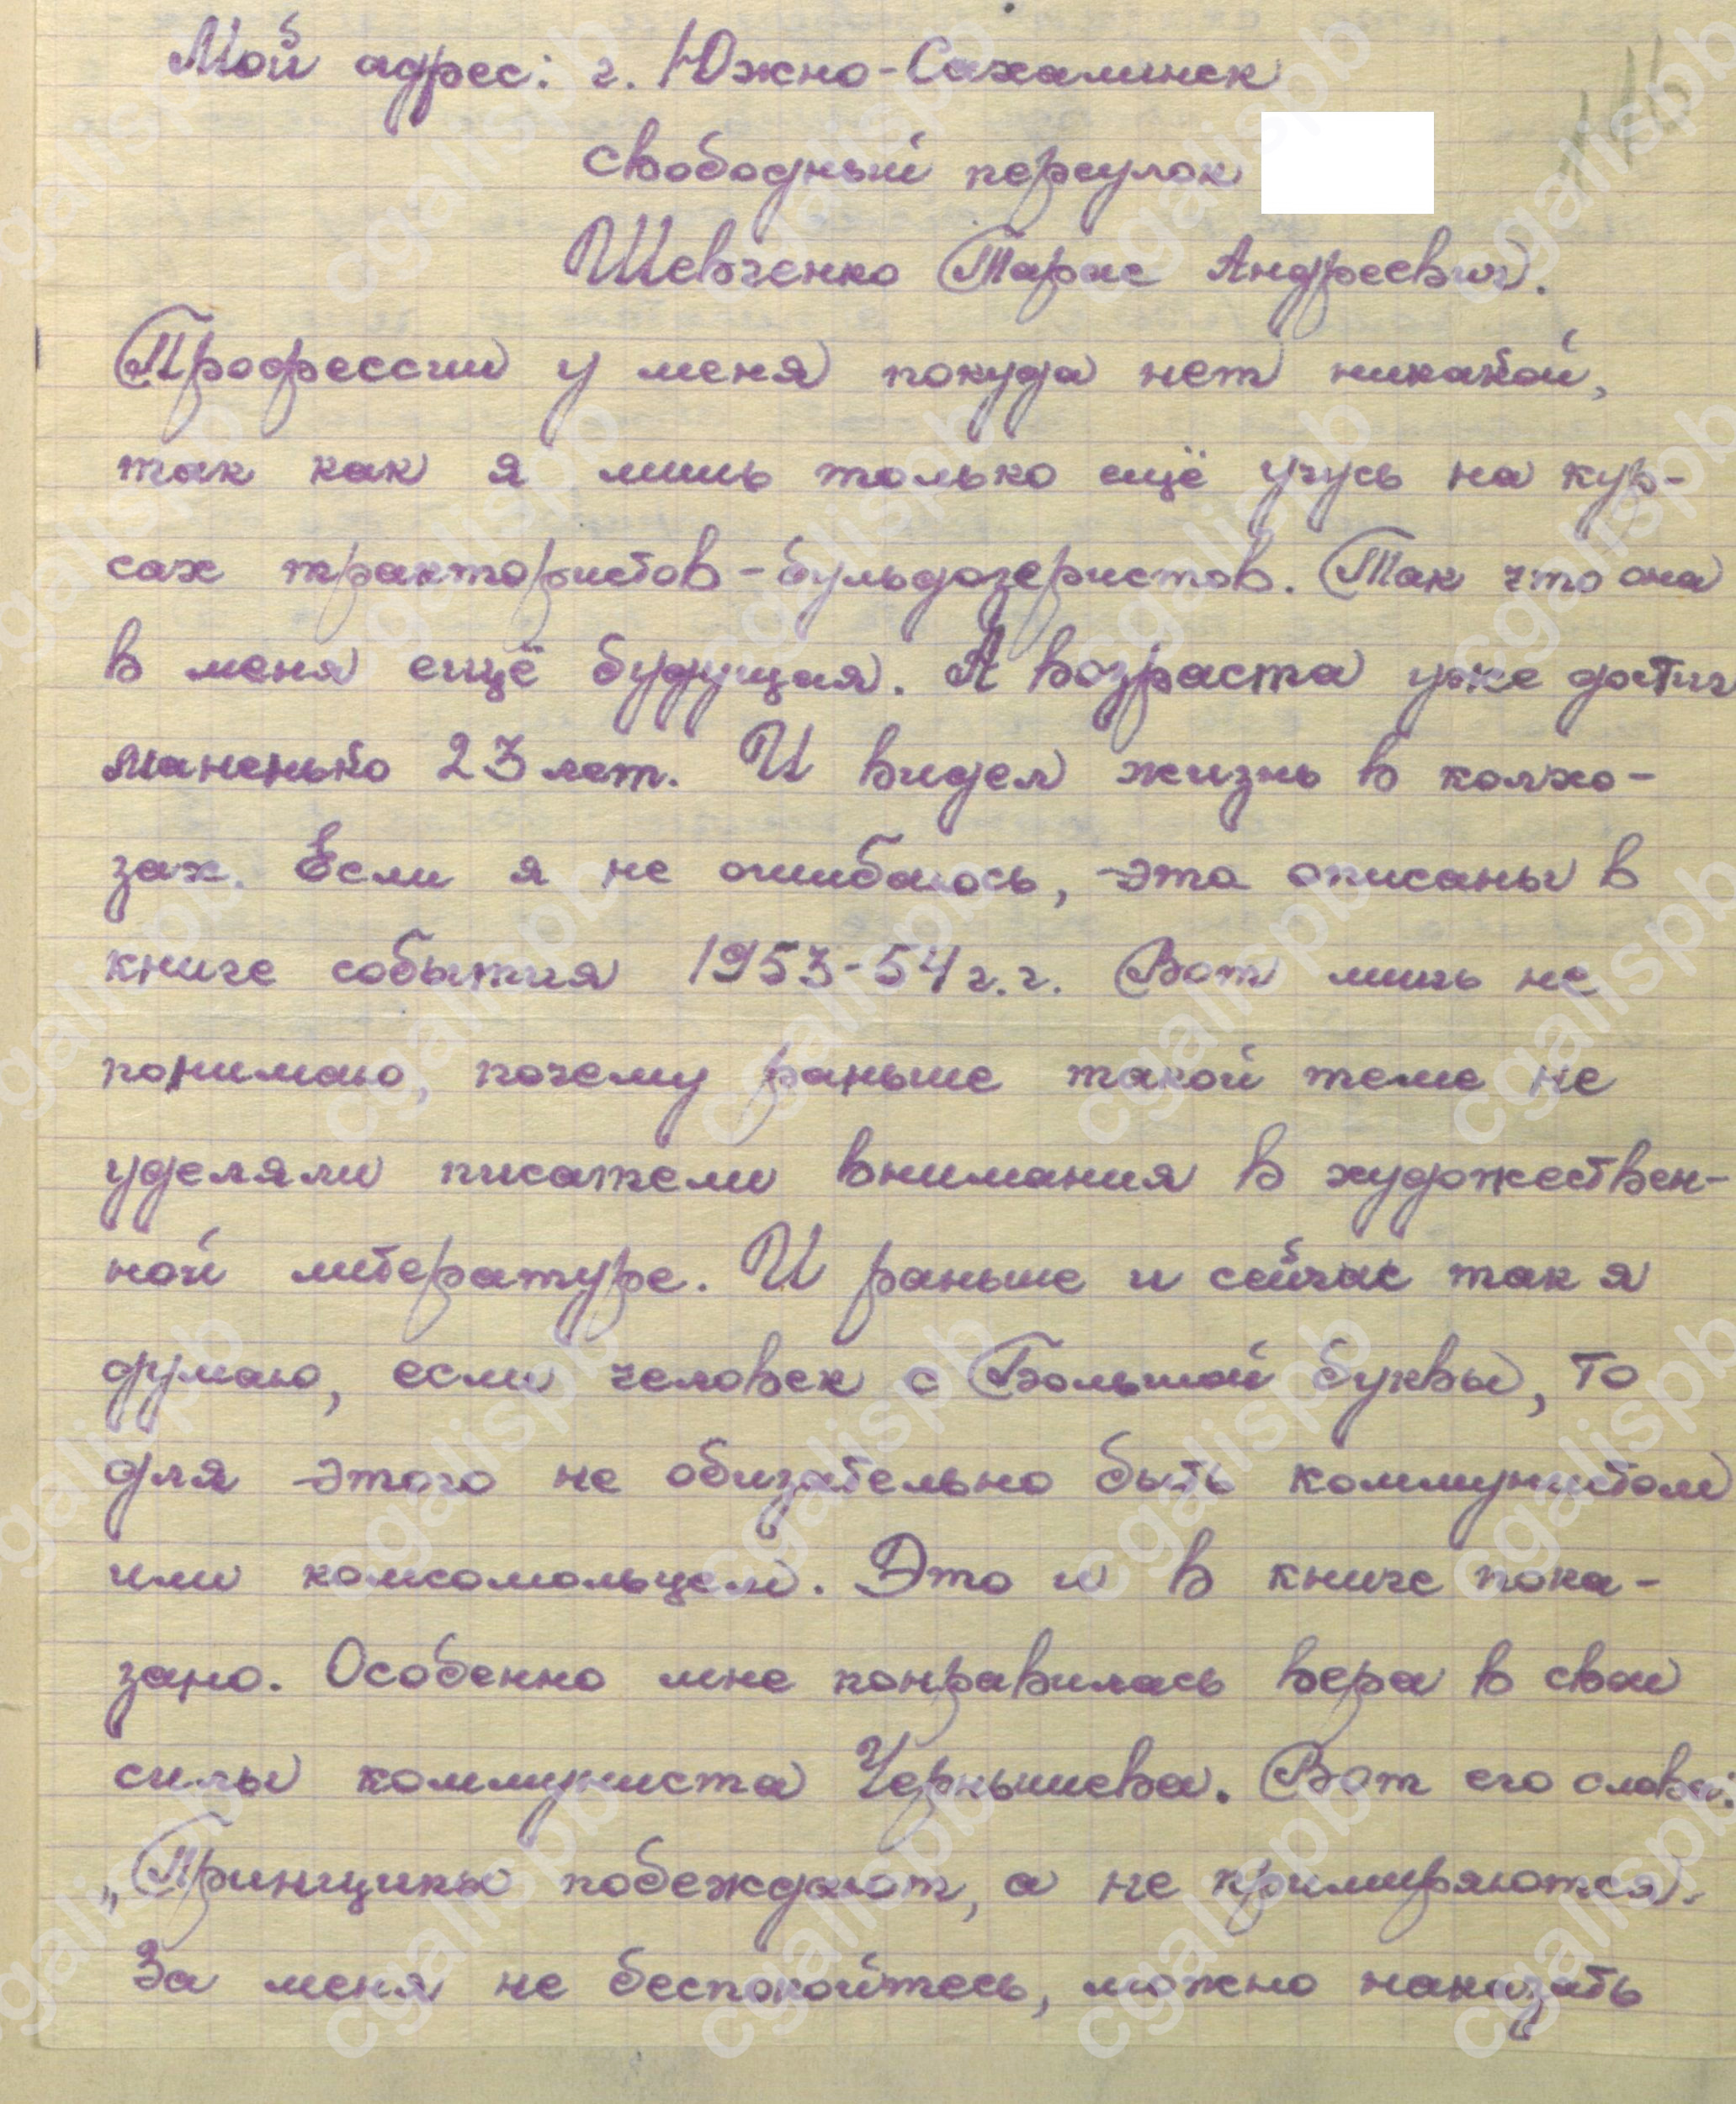 Мой адрес: г. Южно-Сахалинск
свободный переулок
Шевченко Тарас Андреевич.
Профессии у меня покуда нет никакой,
так как я лишь только ещё учусь на кур-
сах трактористов-бульдозеристов. Так что она
в меня ещё будущая. А возраста уже достиг
маненько 23 лет. И видел жизнь в колхо-
зах. Если я не ошибаюсь, эта описаны в
книге события 1953-54 г.г. Вот лишь не
понимаю, почему раньше такой теме не
уделяли писатели внимания в художествен-
ной литературе. И раньше и сейчас так я
думаю, если человек с Большой буквы, то
для этого не обизательно быть коммунистом
или комсомольцем. Это и в книге пока-
зано. Особенно мне понравилась вера в свои
силы коммуниста Чернышева. Вот его слова:
„Принципы побеждают, а не примиряются.
За меня не беспокойтесь, можно наказать
cgalispb